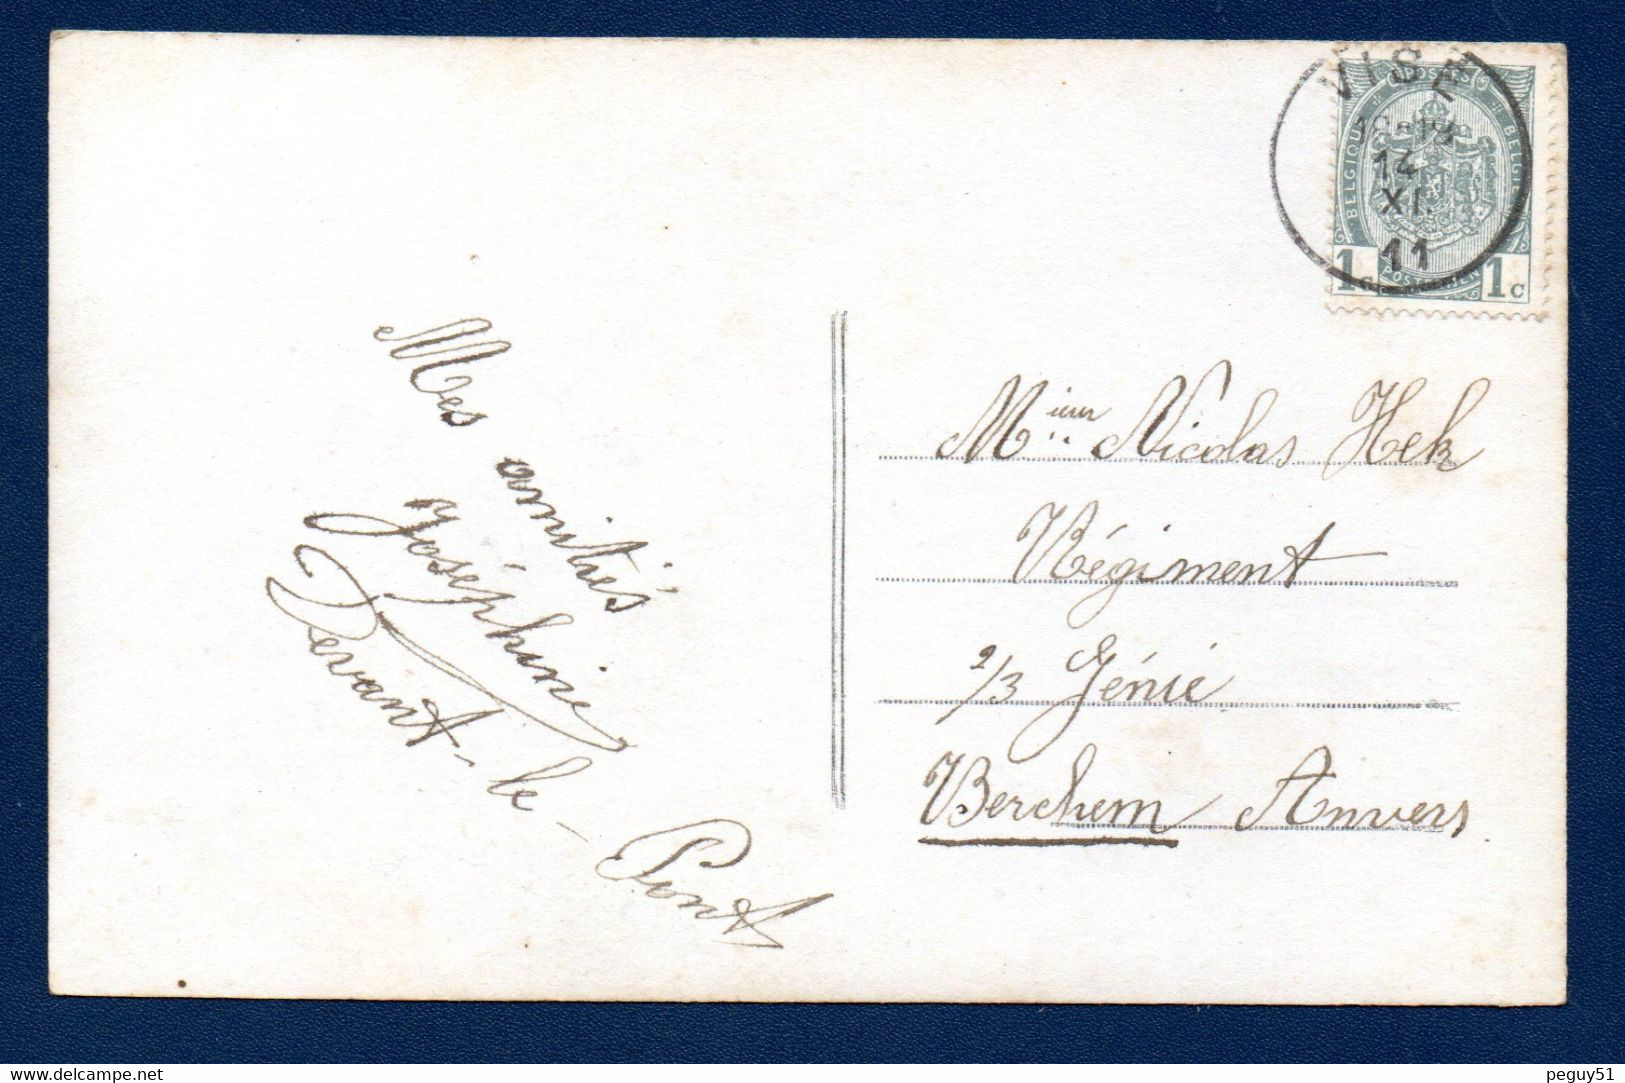 Mes amitiés
Joséphine
Devant-le-Pont
VISE
18-19
14
XI.
11
POSTES
BELGIQUE
BELGIE
POSTERIJEN
1c 1c
Mieur Nicolas Hek
Régiment
2/3 Génie
Berchem Anvers
www.delcampe.net
peguy51